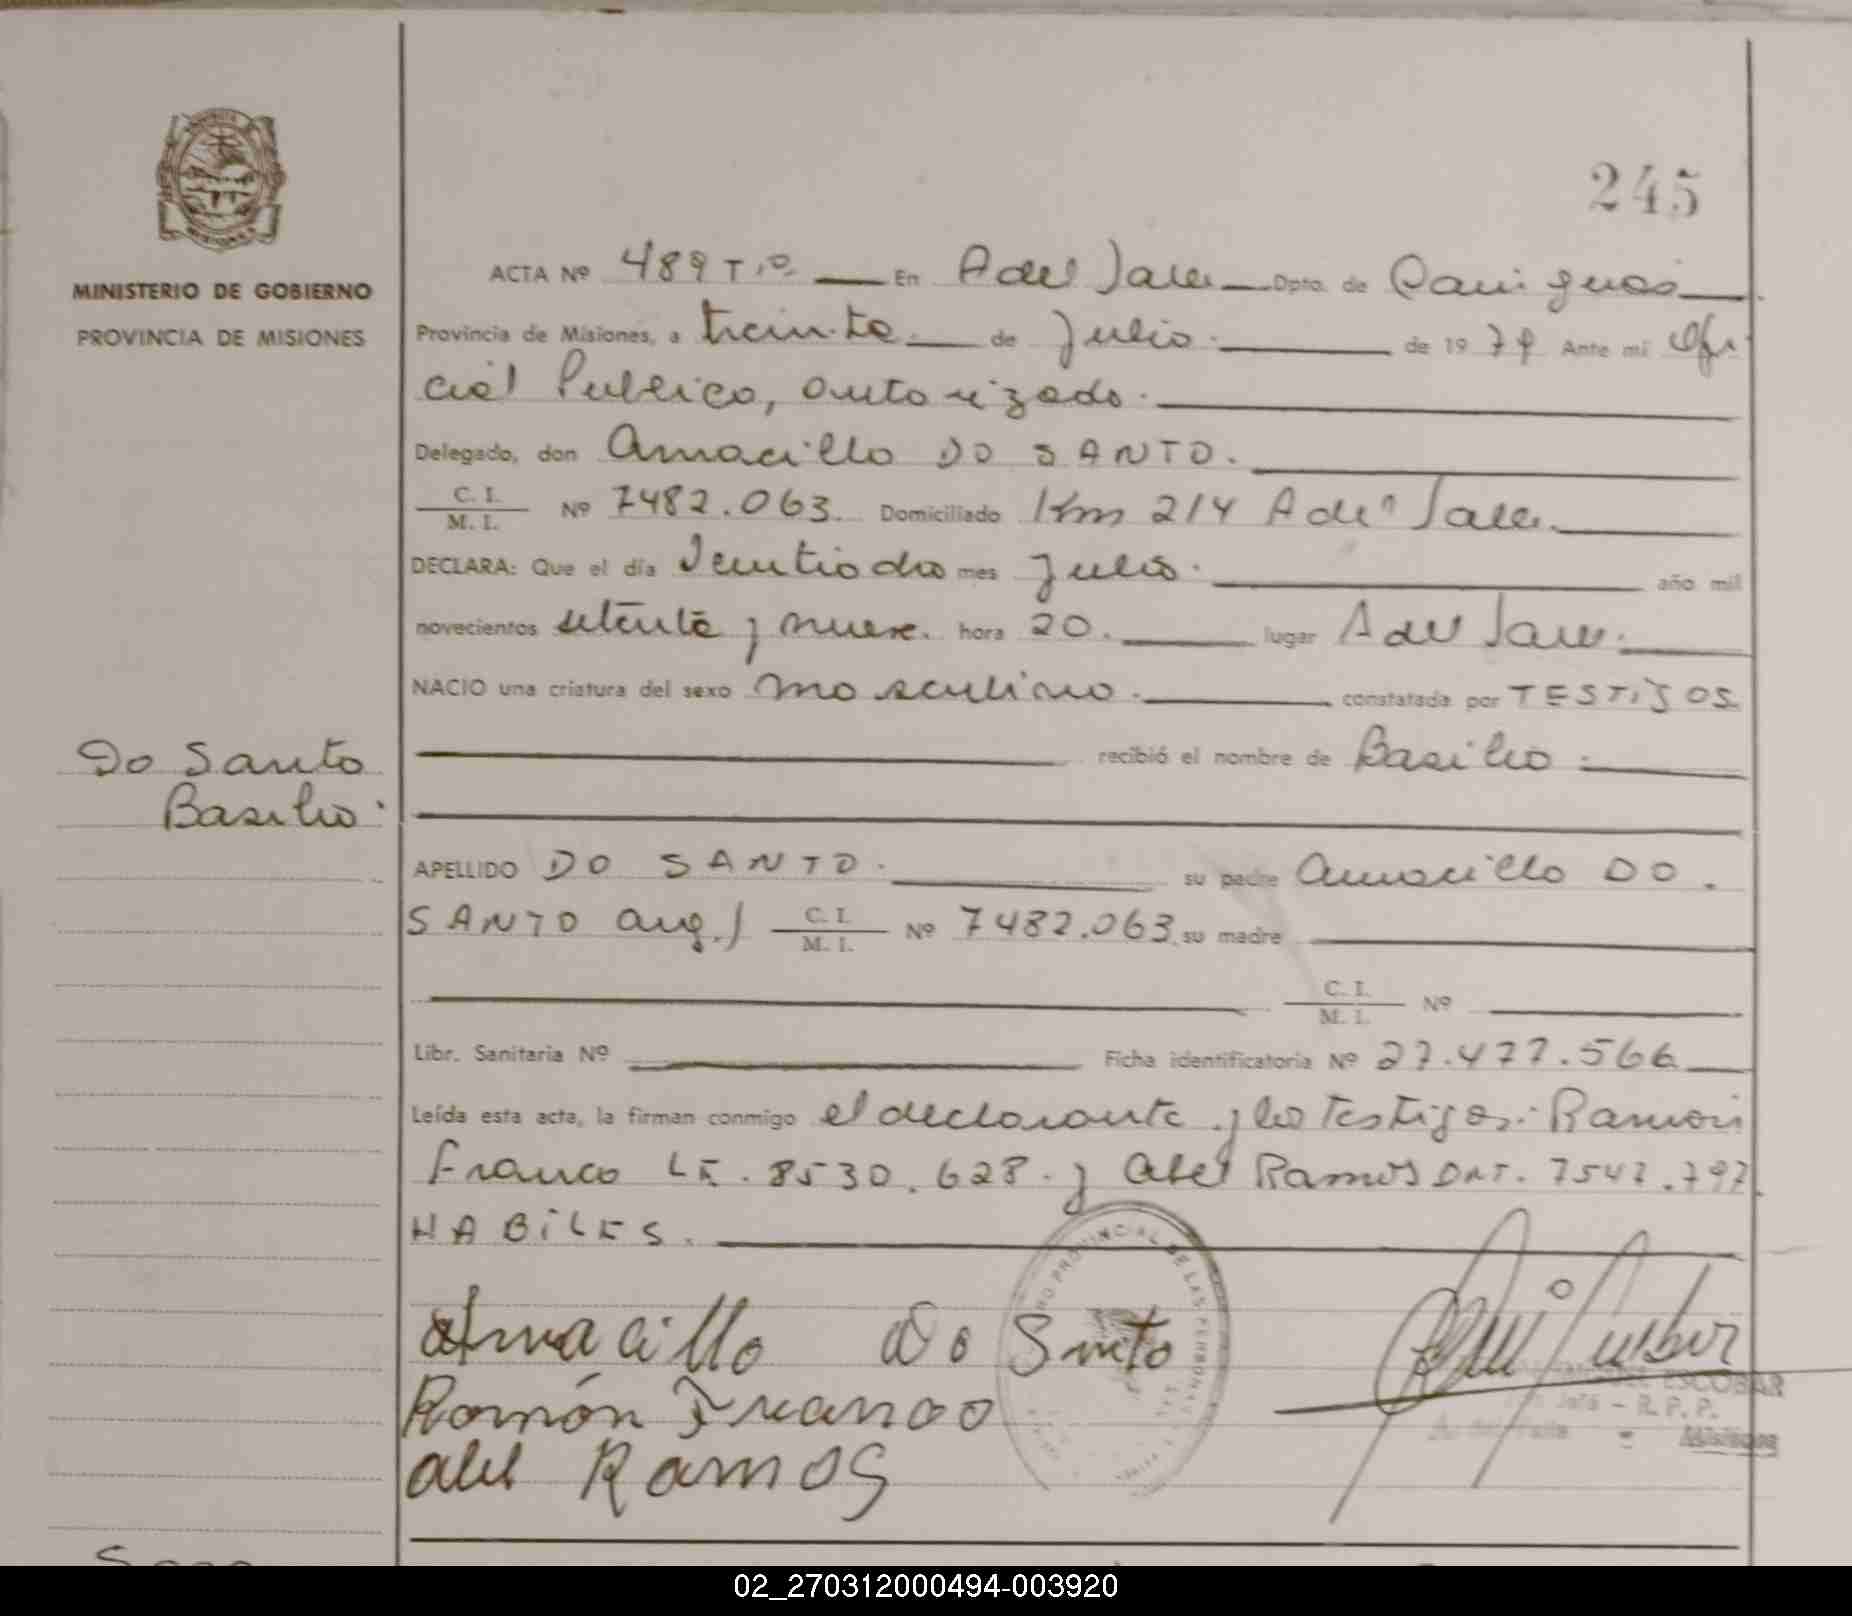 245
MINISTERIO DE GOBIERNO
PROVINCIA DE MISIONES
ACTA Nº 489 Tº En A del Valle Dpto. de Cainguas
Provincia de Misiones, a treinta de Julio de 1979 Ante mi Ofi
cial Publico, autorizado.
Delegado, don Amacillo DO SANTO.
C. I.
M. I. Nº 7482.063. Domiciliado Km 214 A delº Valle.
DECLARA: Que el día Veintiocho mes Julio. año mil
novecientos setenta y nueve. hora 20. lugar A del Valle.
NACIO una criatura del sexo masculino. constatada por TESTIJOS.
Do Santo
Basilio.
recibió el nombre de Basilio.
APELLIDO DO SANTO. su padre Amacillo DO.
SANTO arg./ C. I.
M. I. Nº 7482.063. su madre
C. I.
M. I. Nº
Libr. Sanitaria Nº Ficha identificatoria Nº 27.477.566
Leída esta acta, la firman conmigo el declarante y los Testigos: Ramón
Franco LE. 8530.628. y Abel Ramos DNI. 7547.797.
HABILES.
Amacillo do Santo
Ramón Franco
abel Ramos
PROVINCIAL DE LAS PERSONAS
ESCOBAR
R. P. P.
Misiones
02_270312000494-003920